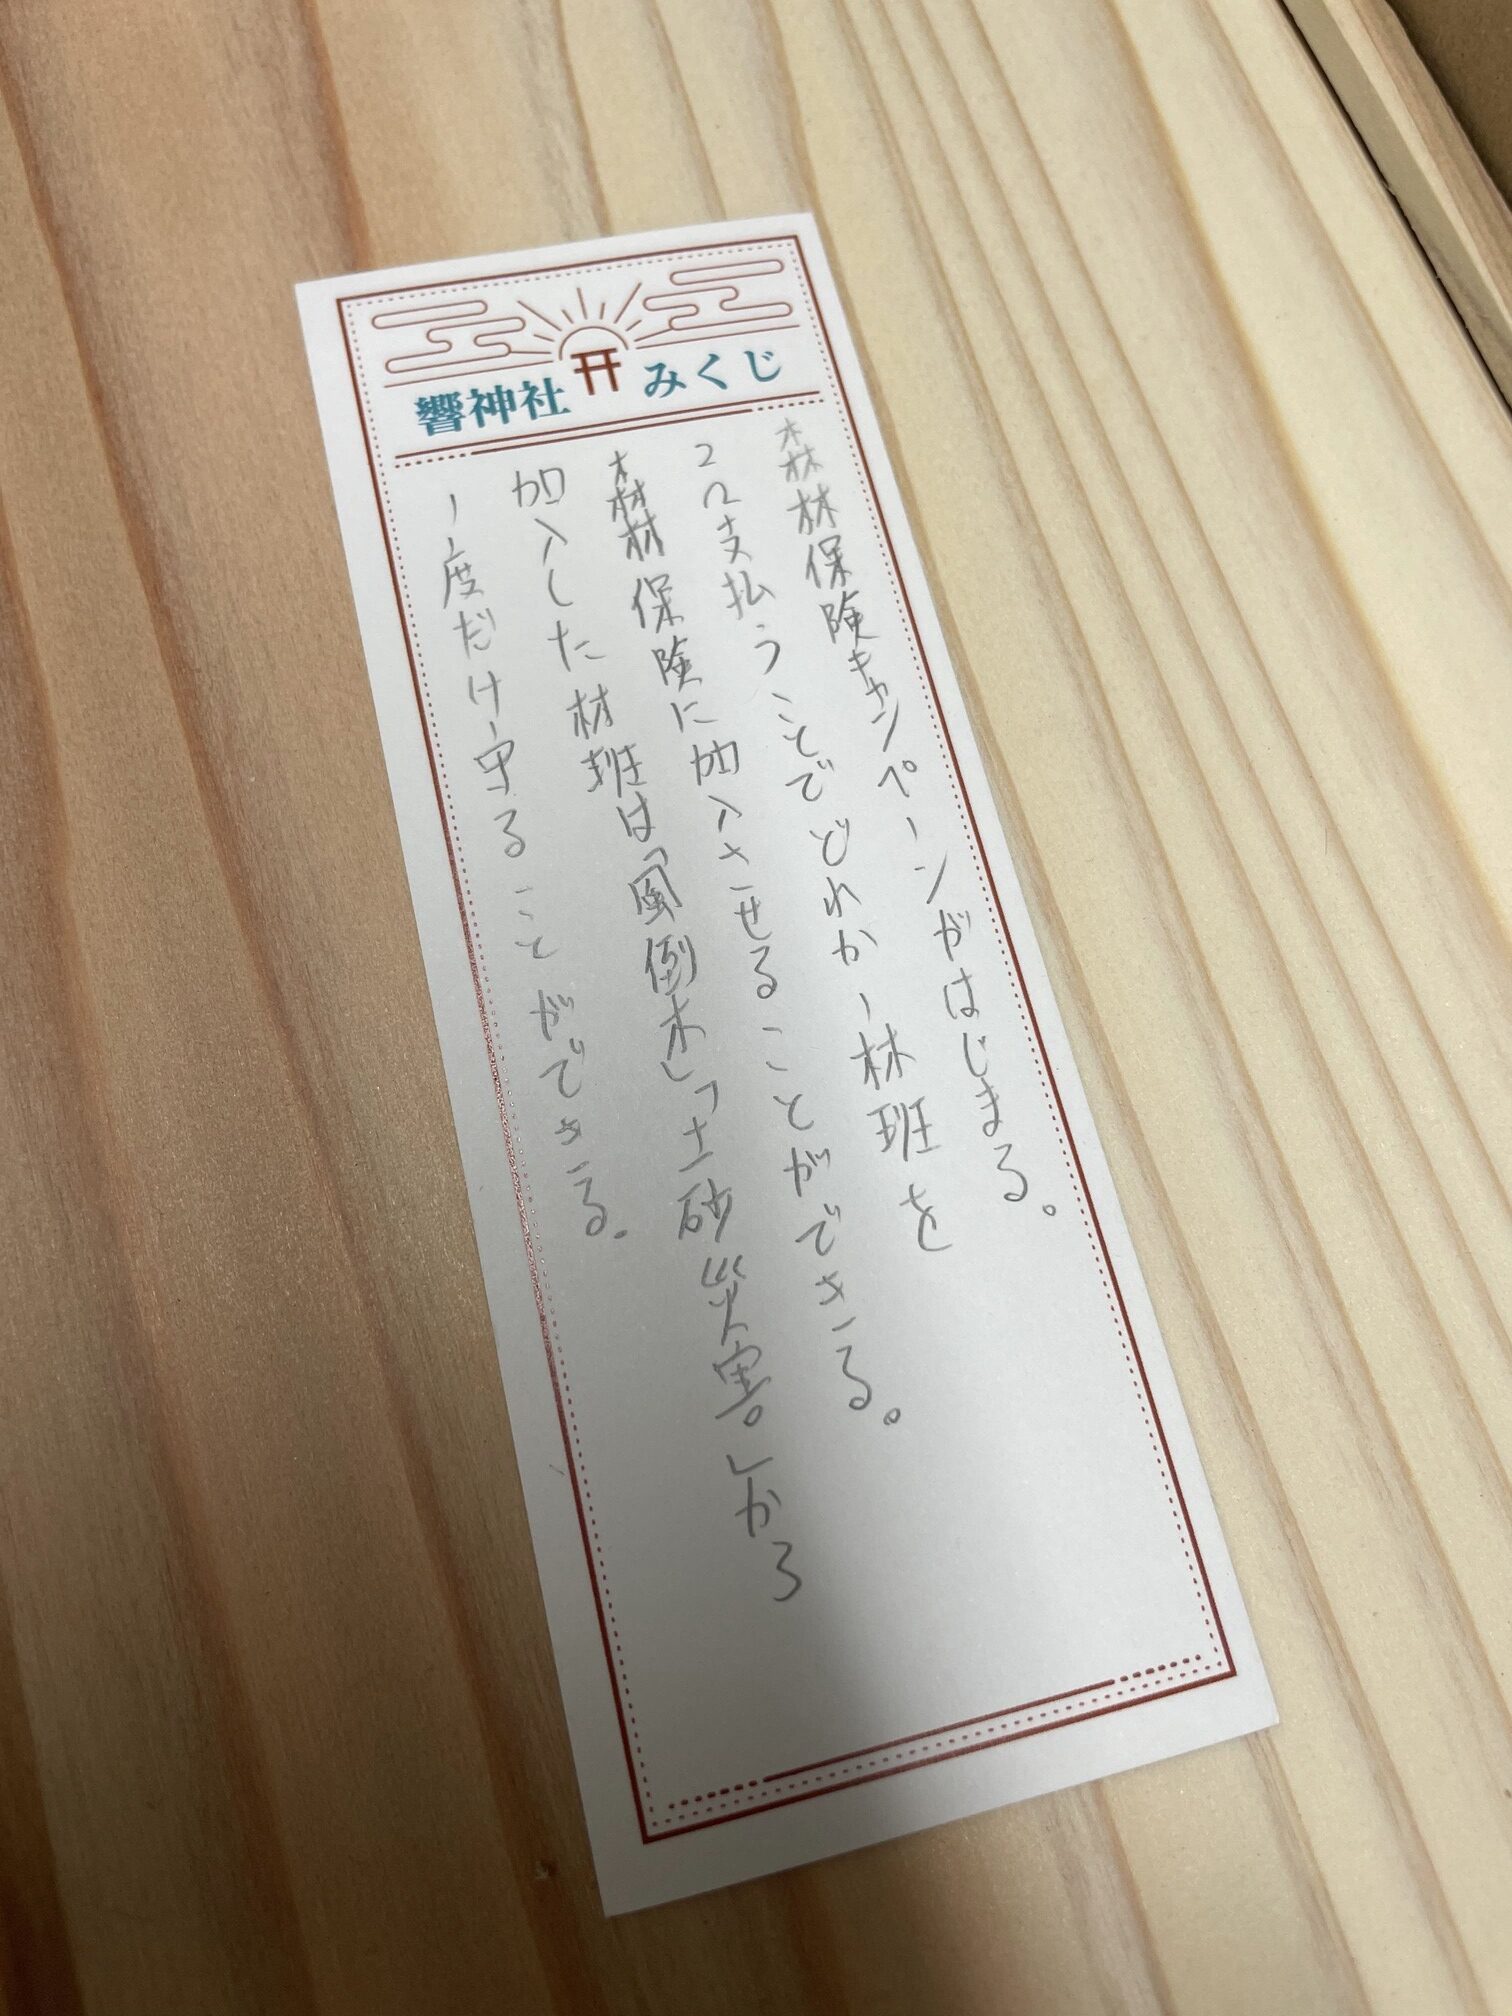 響神社 みくじ
森林保険キャンペーンがはじまる。
2Ω支払うことでどれか一林班を
森林保険に加入させることができる。
加入した林班は「風倒木」「土砂災害。」から
一度だけ守ることができる。